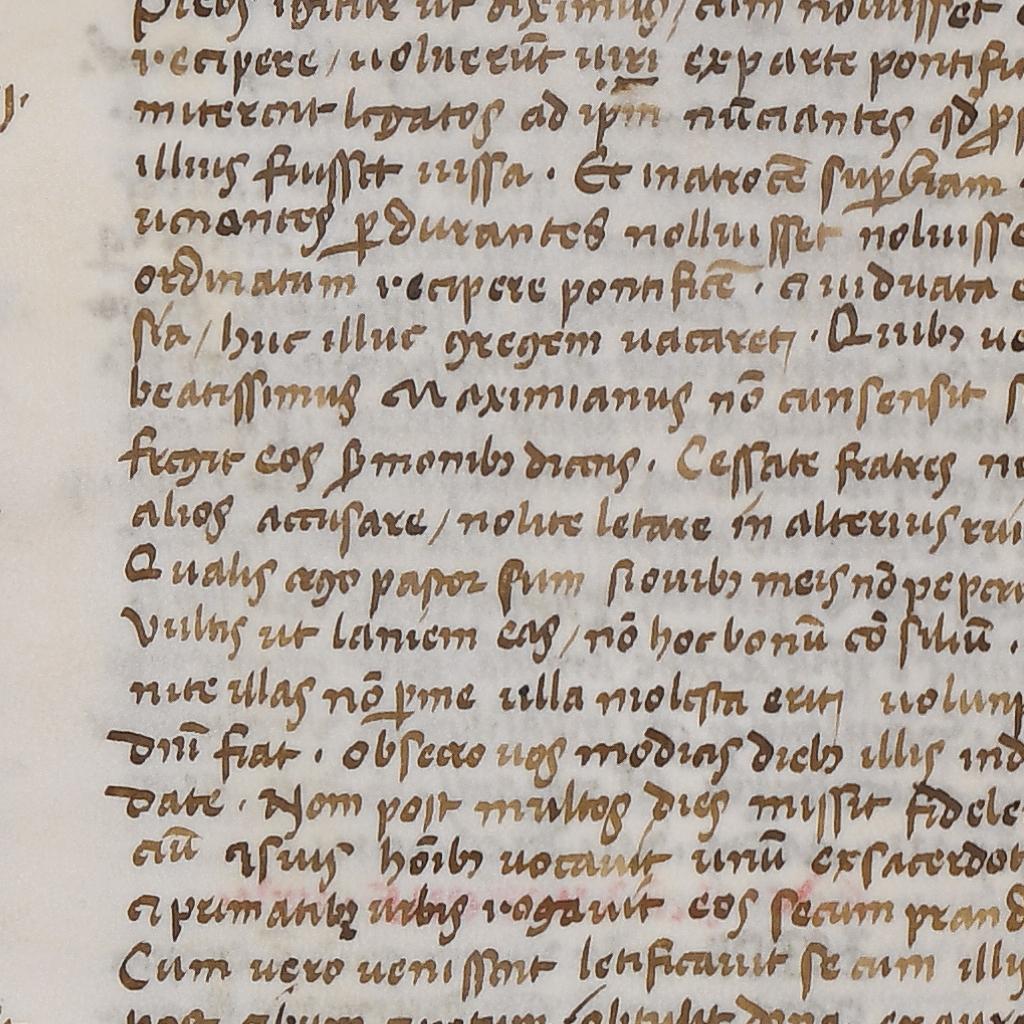 plebs igitur ut diximus / cum noluisset
recipere / uoluerūt uiri ex parte pontifi
miterent legatos ad ip̄m nūciantes qd̄
illius fuisset iussa . Et in atrocē suꝑbiam
uenientes ꝑdurantes nolluisset noluisse
ordinatum recipere pontificē . et uiduata e
sia / huc illuc gregem uacaret . Quibꝫ ue
beatissimus Maximianus nō cunsensit s
fregit eos s̄monibꝫ dicens . Cessate fratres n
alios accusare / nolite letare in alterius rui
Qualis ergo pastor sum si ouibꝫ meis nō peperc
Vultis ut laniem eas / nō hoc bonū cōsiliū .
nite illas nō ꝑ me ulla molesta erit uolun
dnī fiat . obsecro uos modicis diebꝫ illis ind
date . Nom post multos dies missit fidele
ciū et suis hōibꝫ uocauit unū ex sacerdot
et primatibꝫ urbis rogauit eos secum prand
Cum uero uenissent letificauit se cum illis